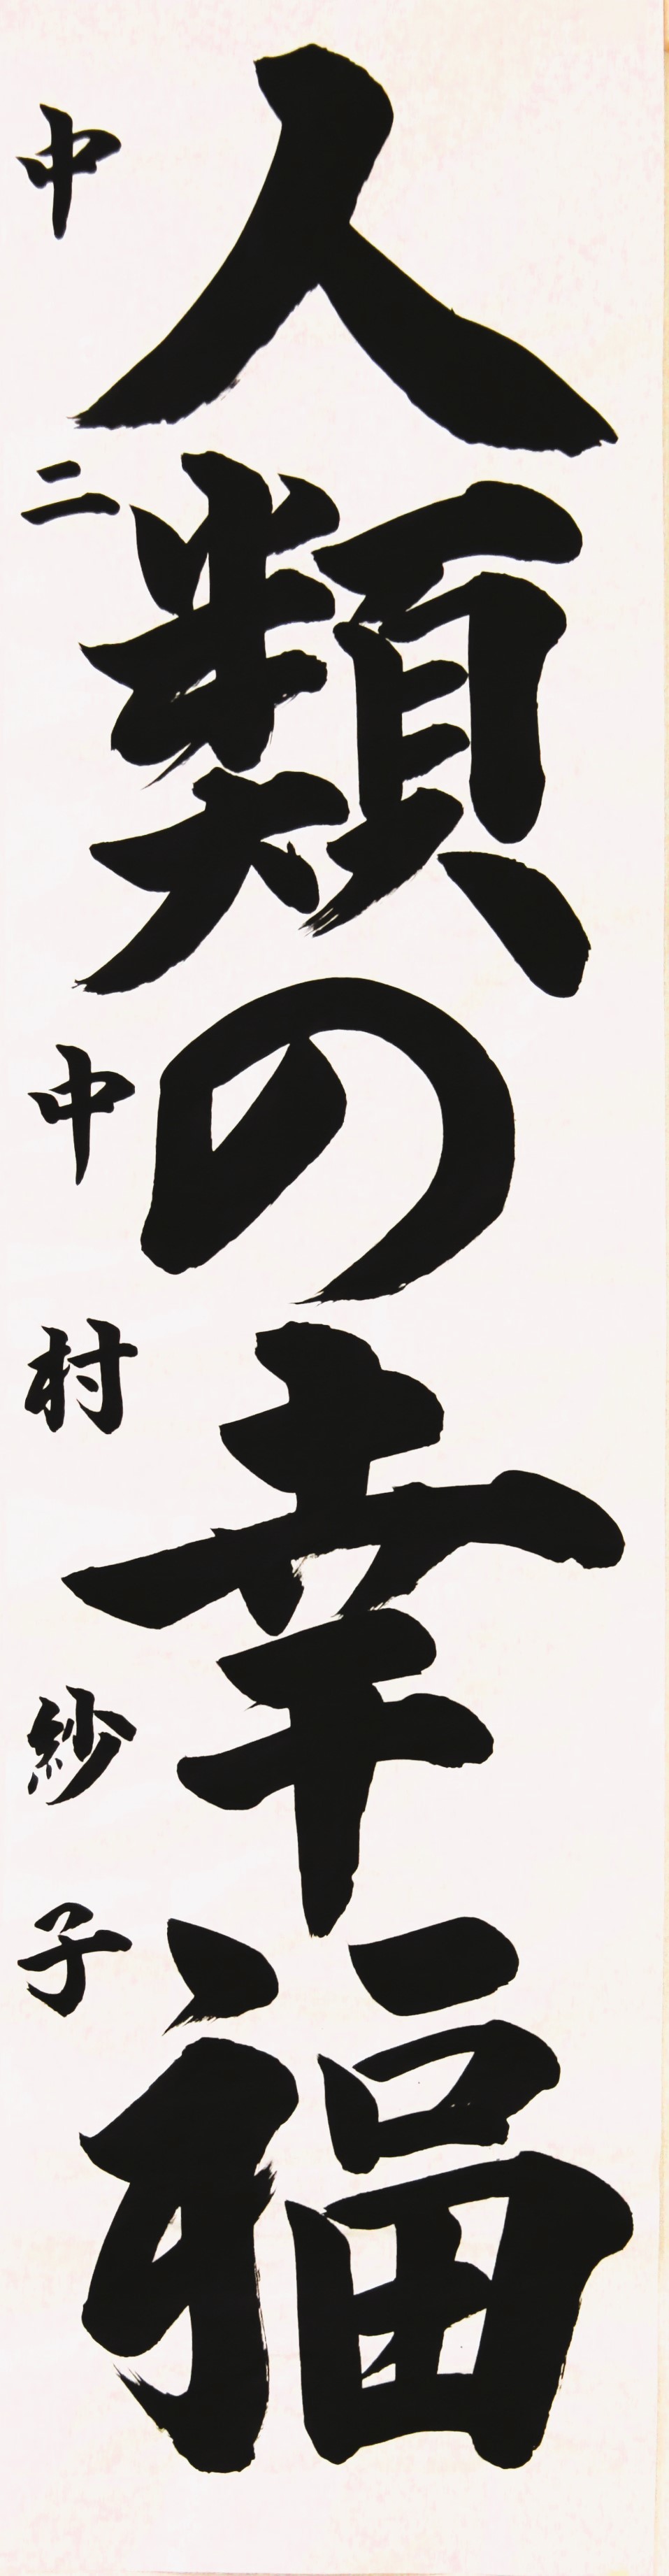 人類の幸福
中二 中村紗子